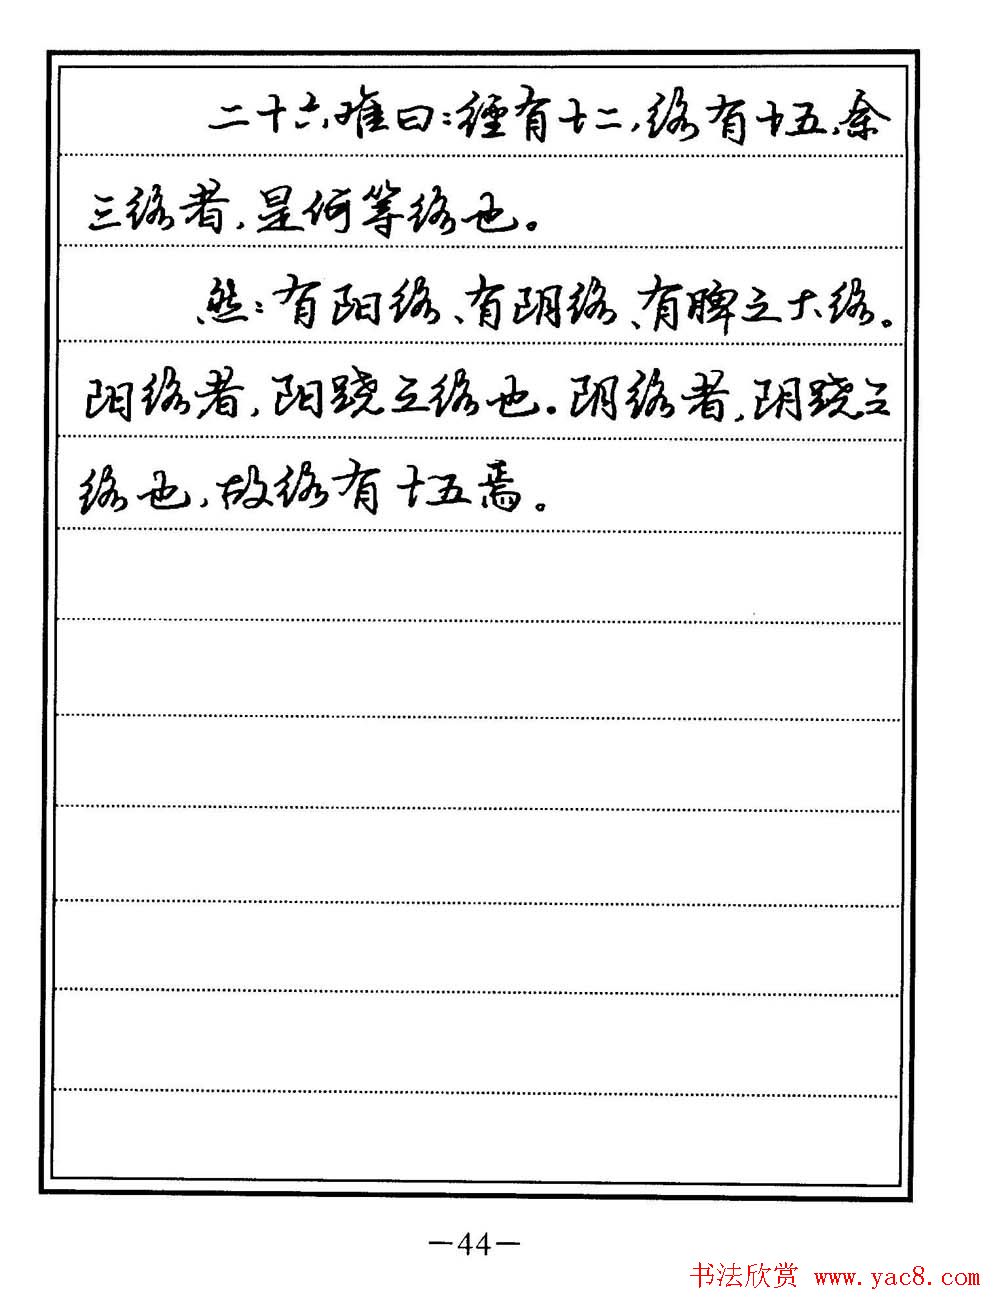 二十六难曰：經有十二，络有十五，余
三络者，是何等络也。
然：有阳络、有阴络、有脾之大络。
阳络者，阳跷之络也。阴络者，阴跷之
络也，故络有十五焉。
—44—
书法欣赏 www.yac8.com